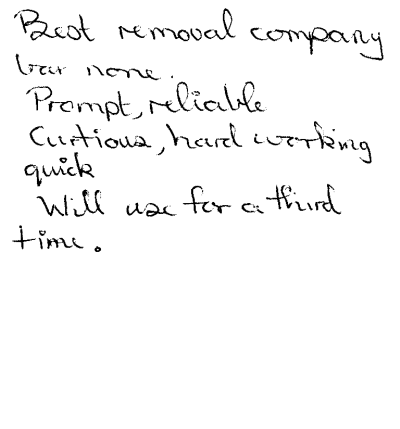 Best removal company
bar none.
Prompt, reliable
Curtious, hard working
quick
Will use for a third
time.